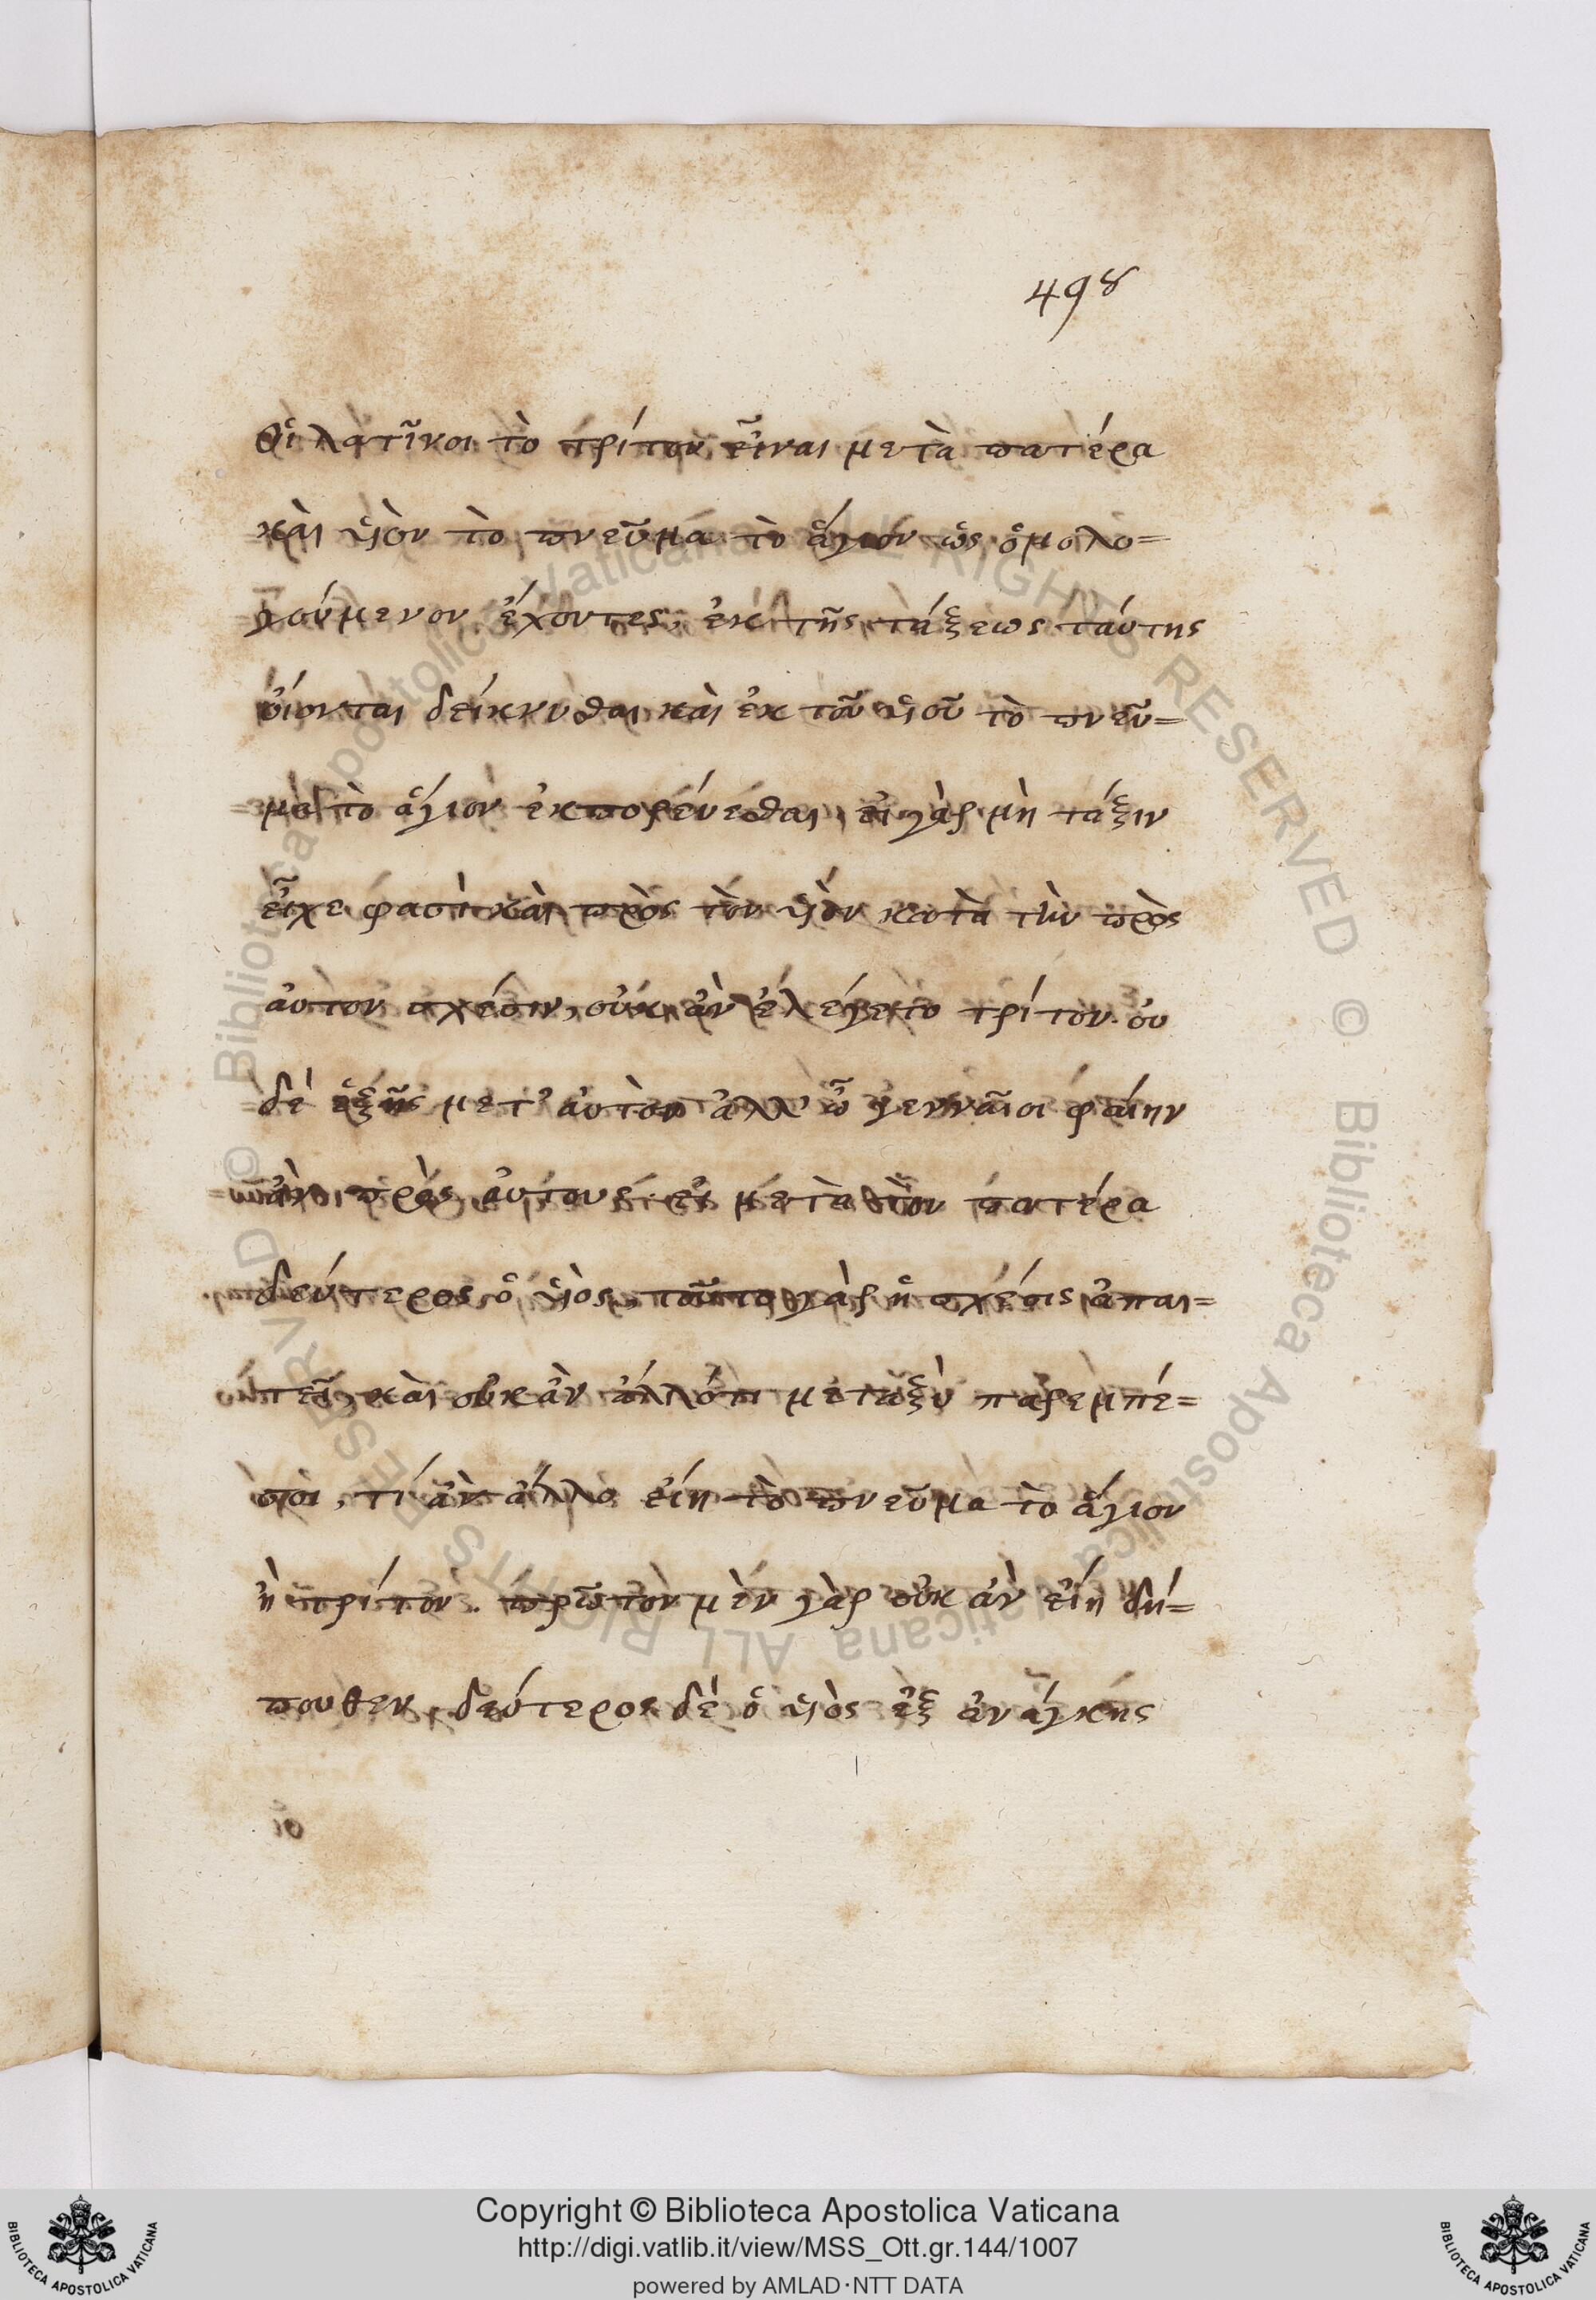 498
Οἱ λατῖνοι τὸ τρίτον εἶναι μετὰ πατέρα
καὶ ὑιὸν τὸ πνεῦμα τὸ ἅγιον ὡς ὁμολο=
γούμενον ἔχοντες, ἐκ τῆς τάξεως ταύτης
ὀίονται δείκνυσθαι καὶ ἐκ τοῦ ὑιοῦ τὸ πνεῦ=
μα τὸ ἅγιον ἐκπορέυεσθαι, εἰ γὰρ μὴ τάξιν
εἶχε φασὶ καὶ πρὸς τὸν ὑιὸν κατὰ τὴν πρὸς
ἀυτον σχέσιν, οὐκ ἀν ἐλέγετο τρίτον. ὀυ
δὲ ἑξῆς μετ' ἀυτὸν ἀλλ' ὦ γενναῖοι φαίην
ἀν πρὸς ἀυτους εἰ μετὰ τὸν πατέρα
δεύτερος ὁ ὑιὸς, τοῦτο γὰρ ἡ σχέσις ἀπαι=
τεῖ, καὶ οὐκ ἀν ἀλλότι μεταξὺ παρεμπέ=
σοι, τί ἀν ἀλλο εἴη τὸ πνεῦμα τὸ ἅγιον
ἢ τρίτον. πρῶτον μὲν γὰρ οὐκ ἀν εἴη δή=
πουθεν, δεύτερος δὲ ὁ ὑιὸς ἐξ ἀνάγκης
Copyright © Biblioteca Apostolica Vaticana
http://digi.vatlib.it/view/MSS_Ott.gr.144/1007
powered by AMLAD·NTT DATA
BIBLIOTECA APOSTOLICA VATICANA
BIBLIOTECA APOSTOLICA VATICANA
© Biblioteca Apostolica Vaticana ALL RIGHTS RESERVED
© Biblioteca Apostolica Vaticana ALL RIGHTS RESERVED